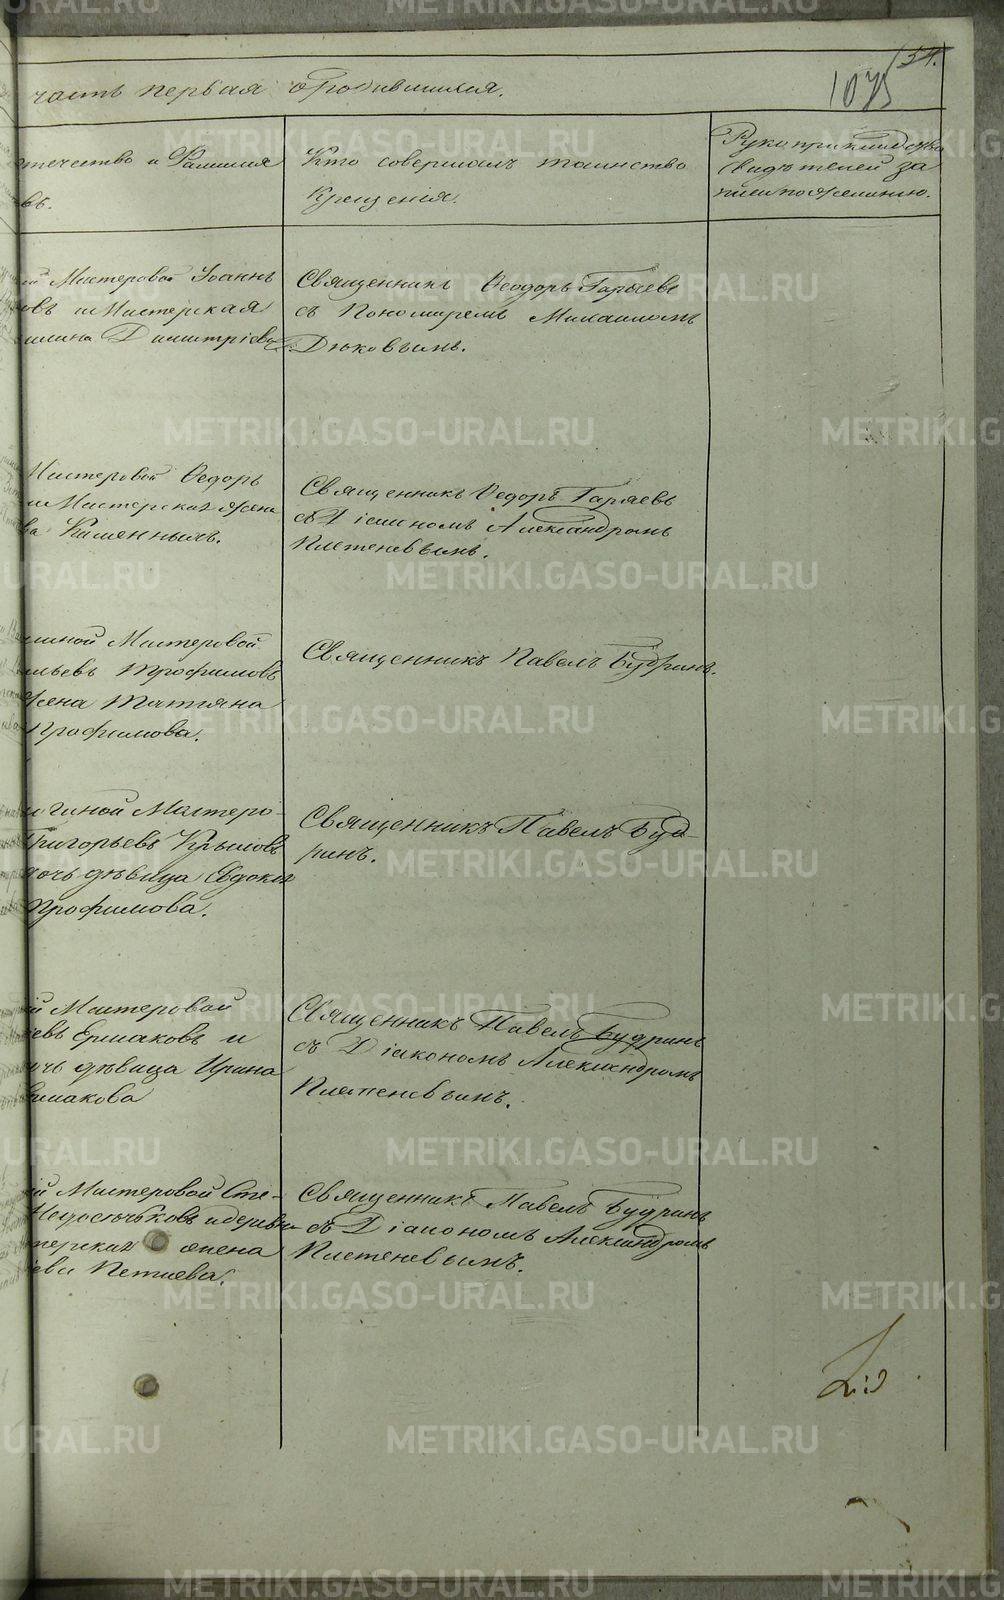 154.
1075
часть первая о родившихся.
течество и Фамилiя
въ.
Кто совершалъ таинство
Крещенiя.
Рукоприкладство
свидѣтелей за
писи по желанiю.
й Мастеровой Iоаннъ
овъ и Мастерская
Димитрiева
Священникъ Ѳеодоръ Гаряевъ
съ Пономаремъ Михаиломъ
Дюковымъ.
Мастеровой Ѳедоръ
и Мастерская жена
ва Каменныхъ.
Священникъ Ѳедоръ Гаряевъ
съ Дiакономъ Александромъ
Плетеневымъ.
Мастеровой
льевъ Трофимовъ
жена Татiяна
Трофимова.
Священникъ Павелъ Будринъ.
Мастеро-
Григорьевъ Крыловъ
дочь дѣвица Евдокiя
Трофимова.
Священникъ Павелъ Буд-
ринъ.
й Мастеровой
евъ Ермаковъ и
очь дѣвица Ирина
рмакова
Священникъ Павелъ Будринъ
съ Дiакономъ Александромъ
Плетеневымъ.
й Мастеровой Сте-
терская жена
ева Петнева.
Священникъ Павелъ Будринъ
съ Дiакономъ Александромъ
Плетеневымъ.
METRIKI.GASO-URAL.RU